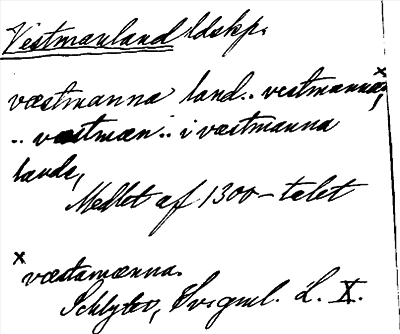 Vestmanland ldskp.
væstmanna land .. vestmanna,
.. væstmæn .. i væstmanna
lande,
Medlet af 1300-talet
x væstamænna.
Schlyter, Sv. gml. L. X.